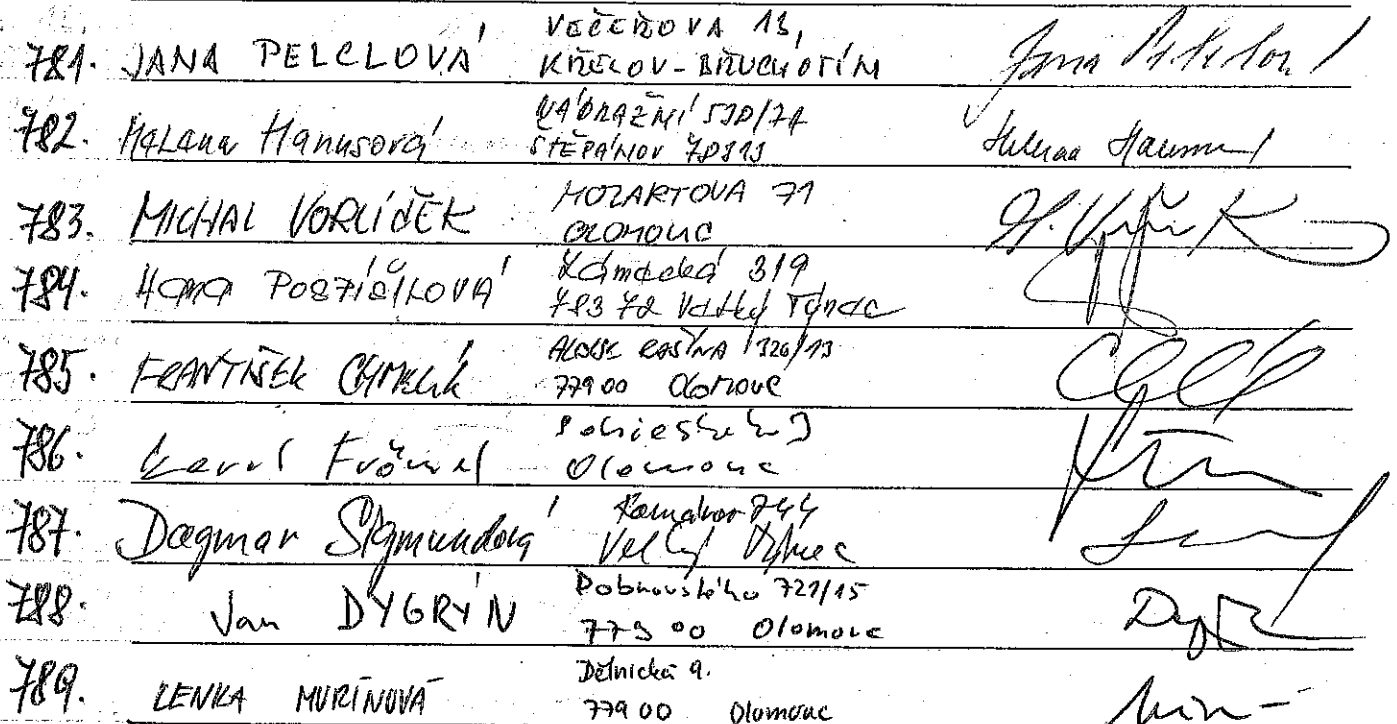 781. JANA PELCLOVÁ VEČEŘOVA 13,
KŘELOV-BŘUCHOTÍN
782. Helena Hanusová NÁDRAŽNÍ 530/74
ŠTĚPÁNOV 78313
783. MICHAL VORLÍČEK MOZARTOVA 71
OLOMOUC
784. Hana POSPÍŠILOVÁ Zámecká 319
783 72 Velký Týnec
785. FRANTIŠEK CHMELÍK ALOISE RAŠÍNA 326/13
779 00 Olomouc
786. Karel
Olomouc
787. Dagmar Sigmundová 744
Velký Týnec
788. Jan DYGRÝN Dobrovského 721/15
779 00 Olomouc
789. LENKA MURÍNOVÁ Dělnická 9.
779 00 Olomouc